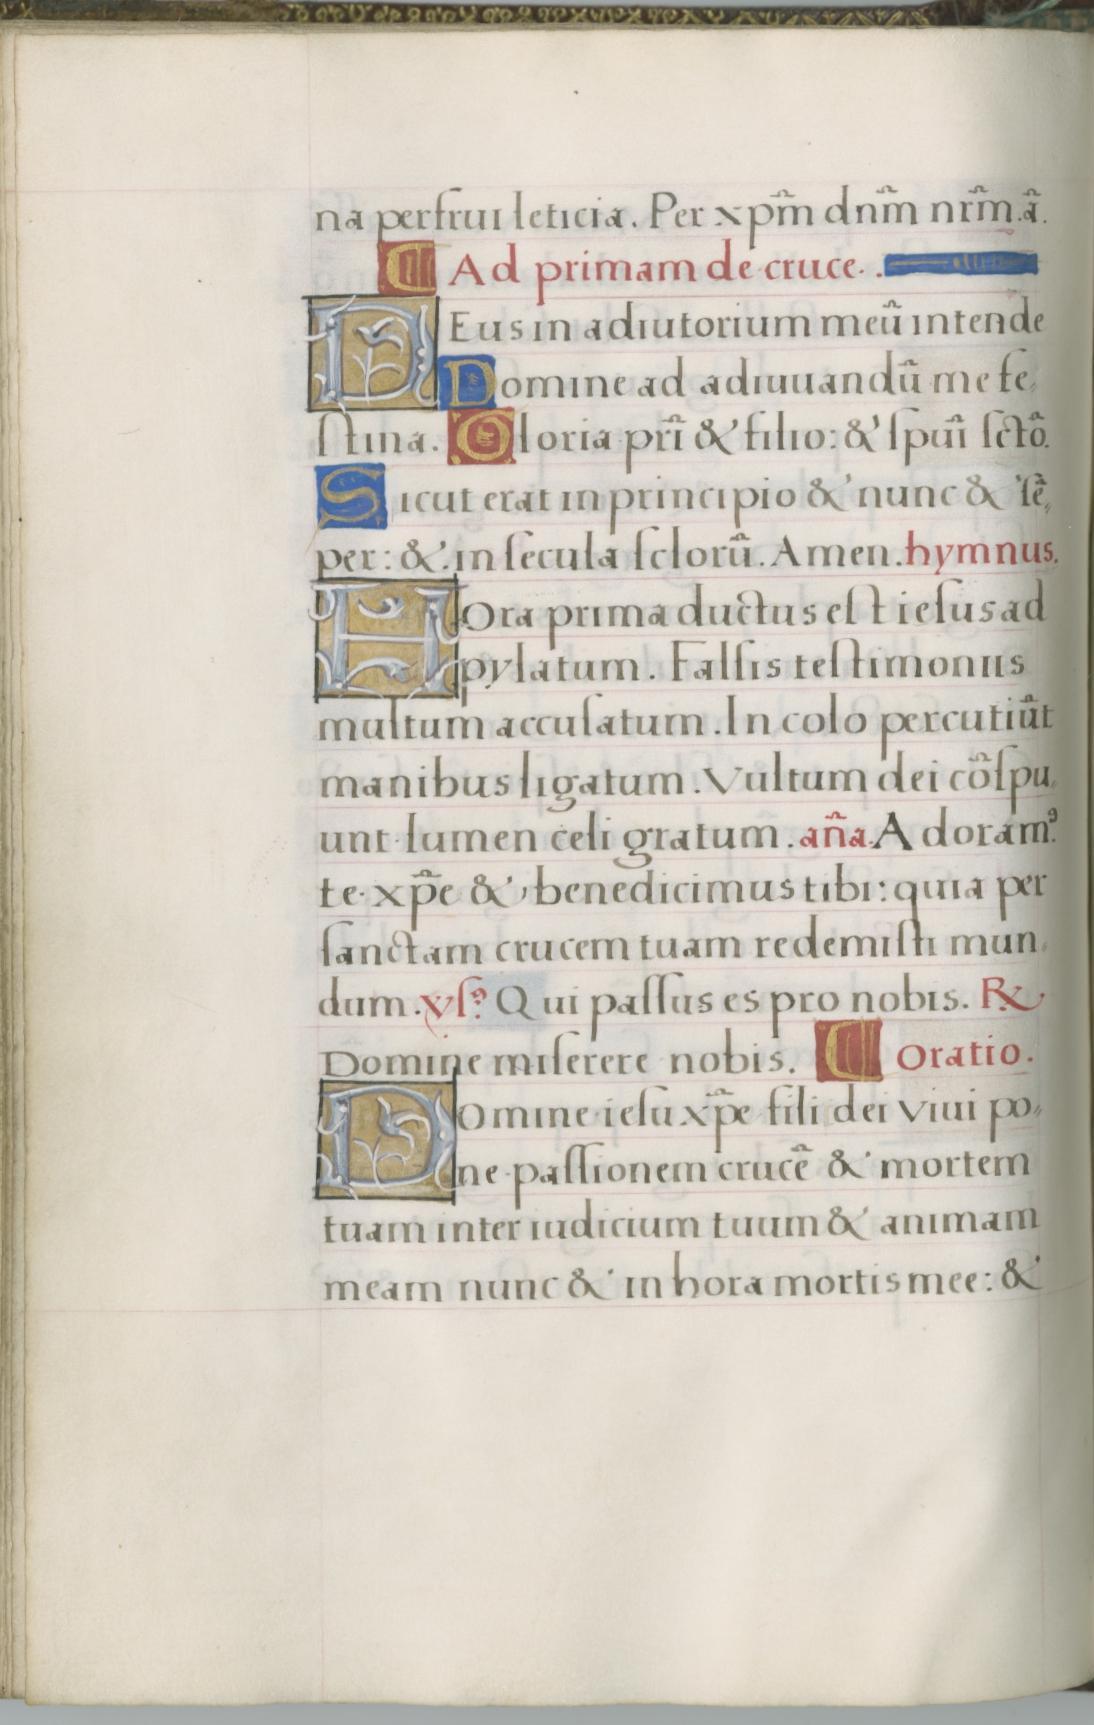 na perfrui leticia. Per xp̃m dñm nr̃m.ã.
¶ Ad primam de cruce.
DEus in adiutorium meũ intende
Domine ad adiuuandũ me fe,
ſtina. Gloria pr̃i & filio: & ſpuĩ ſctõ.
Sicut erat in principio & nunc & ſẽ,
per: & in ſecula ſclorũ. Amen. hymnus.
HOra prima ductus eſt ieſus ad
pylatum. Falſis teſtimoniis
multum accuſatum. In colo percutiũt
manibus ligatum. Vultum dei cõſpu,
unt lumen celi gratum. añа. Adoram⁹
te xp̃e & benedicimus tibi: quia per
ſanctam crucem tuam redemiſti mun,
dum. vſ⁹ Qui paſſus es pro nobis. ℞
Domine miſerere nobis. ¶ Oratio.
DOmine ieſu xp̃e fili dei viui po,,
ne paſſionem crucẽ & mortem
tuam inter iudicium tuum & animam
meam nunc & in hora mortis mee: &